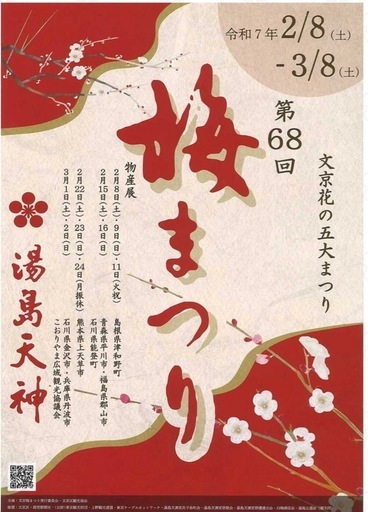 令和7年 2/8(土)
-3/8(土)
第68回
文京花の五大まつり
梅まつり
物産展
2月8日(土)・9日(日)・11日(火祝) 島根県津和野町
2月15日(土)・16日(日) 青森県平川市・福島県郡山市
石川県能登町
2月22日(土)・23日(日)・24日(月振休) 熊本県上天草市
3月1日(土)・2日(日) 石川県金沢市・兵庫県丹波市
こおりやま広域観光協議会
湯島天神